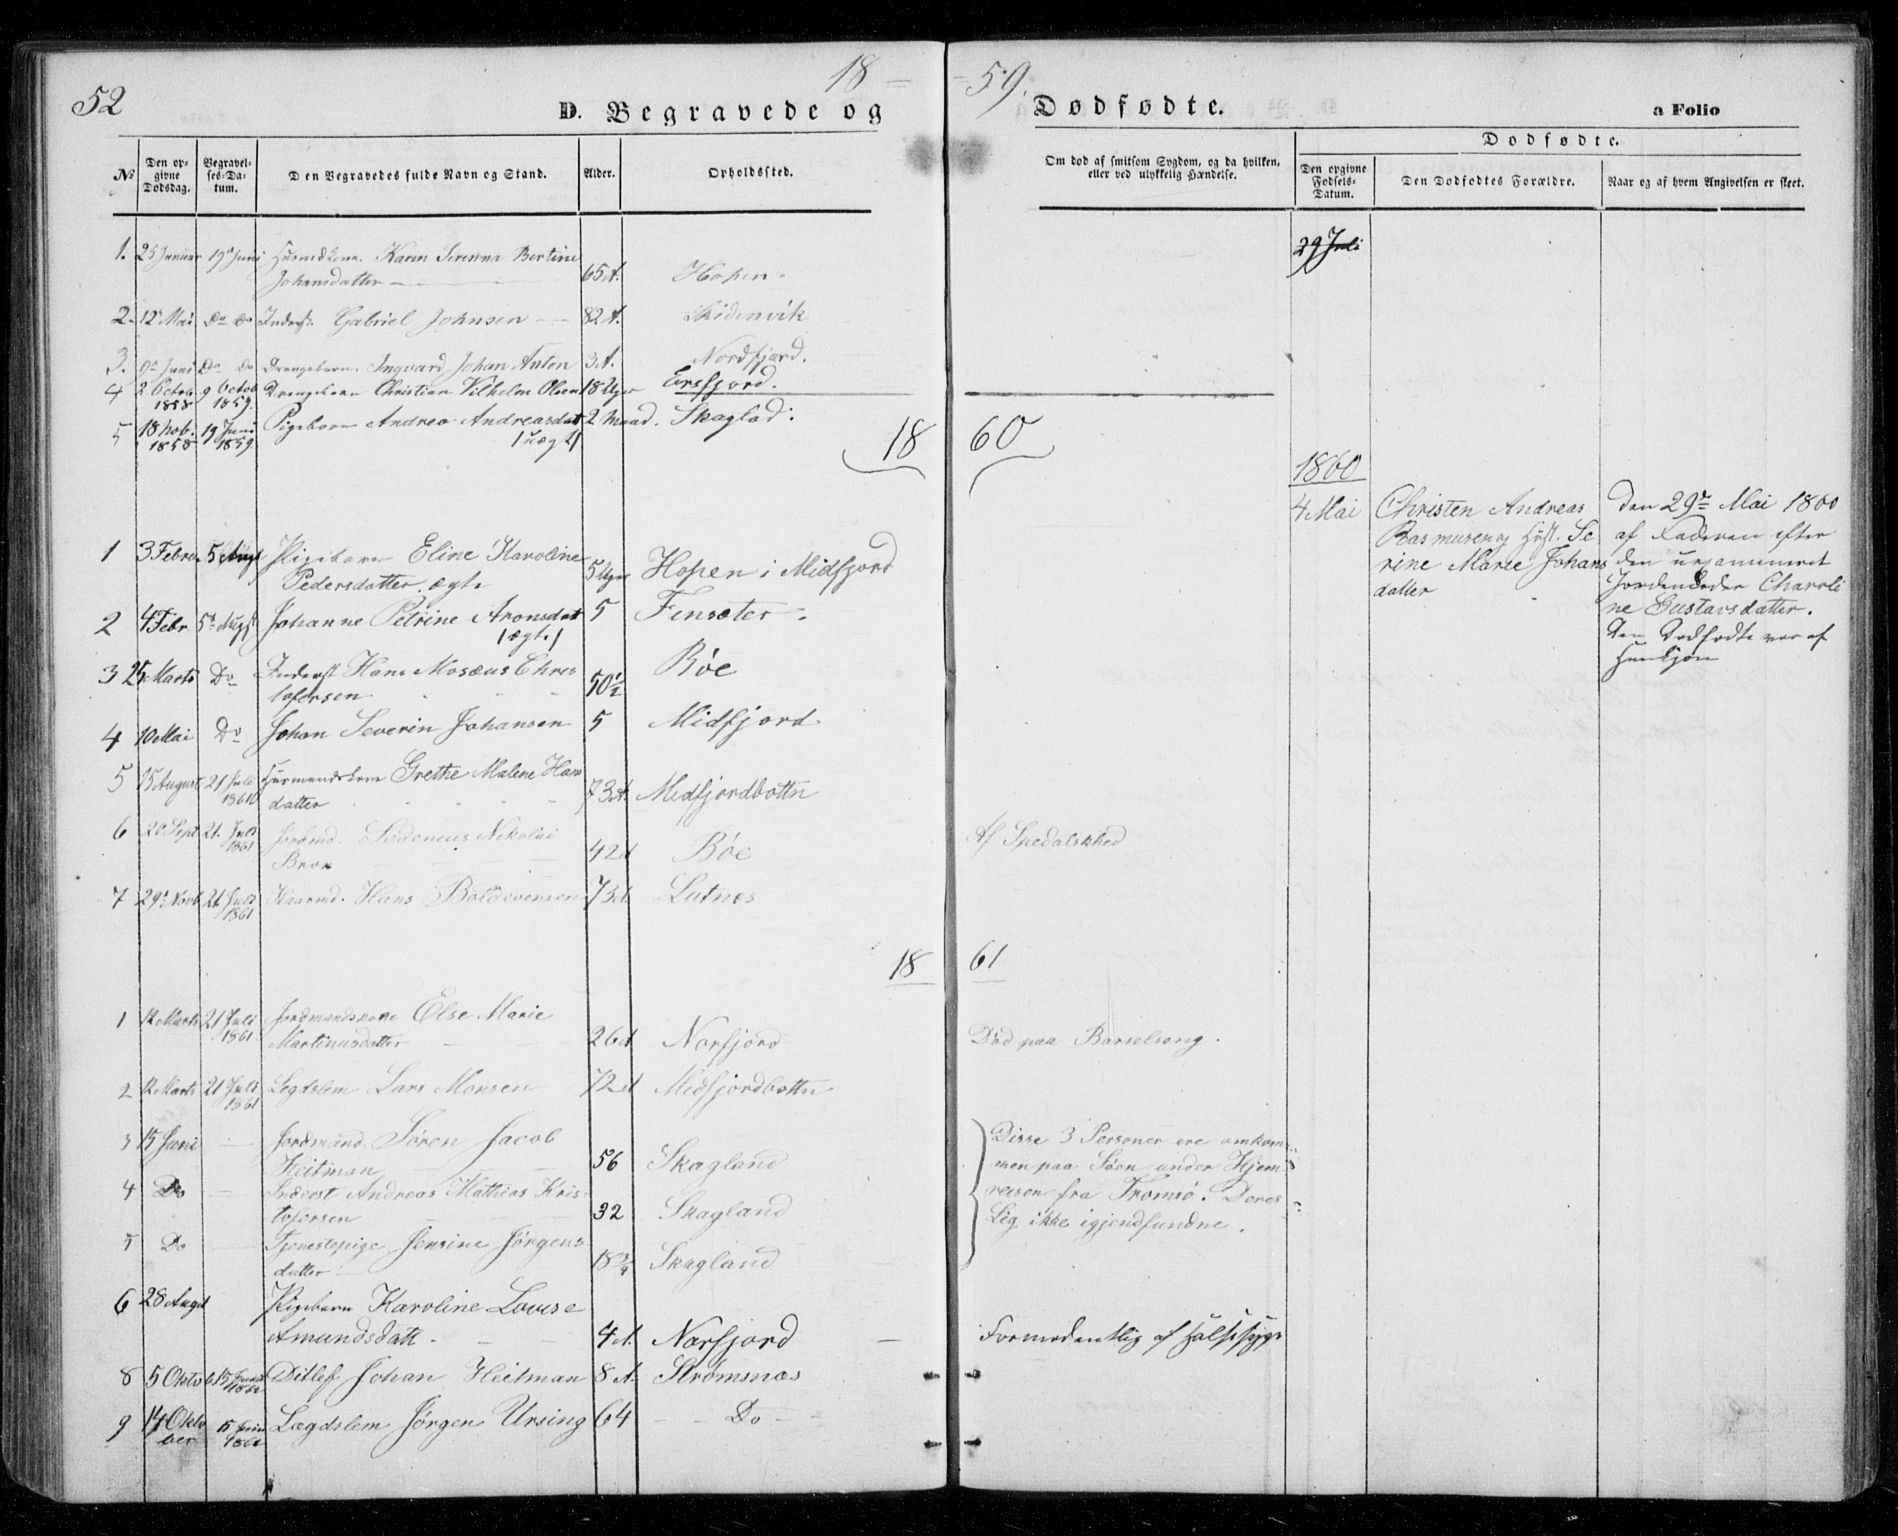 52
18 — 59.
D. Begravede og Dødfødte.
a Folio
No
Den opgivne Dødsdag.
Begravelses-Datum.
Den Begravedes fulde Navn og Stand.
Alder.
Opholdssted.
Om død af smitsom Sygdom, og da hvilken, eller ved ulykkelig Hændelse.
Dødfødte.
Den opgivne Fødsels-Datum.
Den Dødfødtes Forældre.
Naar og af hvem Angivelsen er skeet.
1. 25 Januar 19de Juni Huusmdkone. Karen Serenna Bertine
Johansdatter — 65 A. Hopen.
29 Juli
2. 12te Mai Do Do Inderst. Gabriel Johnsen — 82 A. Skidenvik
3. 9de Juni Do Do Drengebarn. Ingvard Johan Anton 3 A. Nordfjord.
4 2 Octob. 1858 9 Octob 1859. Drengebarn Christian Vilhelm Olsen 18 Uger Ersfjord.
5 18 Nob. 1858 19 Juni 1859. Pigebarn Andrea Andreasdat 2 Maad. Skaglad.
/uægt/
18 60
1860
1 3 Febru. 5 Augt Pigebarn Eline Karoline
Pedersdatter ægte 5 Uger Hopen i Midfjord
2 4 Febr. 5te Augst Johanne Petrine Aronsdat 5 Finsæter.
/ægte/
3 25 Marts Do Inderst Hans Mosæus Chris
tofersen 50 1/2 Bøe
4 10 Mai Do Johan Severin Johansen 5 Midfjord.
5 15 August 21 Juli 1861 Huusmandskone Grethe Malene Hans
datter 73 A. Midfjordbottn
6 20 Sept 21. Juli 1861 Jordmd. Nikolai
42 A Bøe Af Spedalskhed
7 29de Novb 21 Juli 1861 Kaarmd. Hans 73 A Lutnes
4 Mai Christen Andreas
Rasmusen og Hust. Se
rine Marie Johans
datter
Den 29de Mai 1860
af Faderen efter
den uexamineret
Jordemoder Charoli
ne Gustavsdatter.
Den Dødfødte var af
Hunkjøn
18 61
1 12 Marts 21 Juli 1861 Jordmandskone Else Marie
Martinusdatter — 26 A Norfjord Død paa Barselseng.
2 12 Marts 21 Juli 1861 Legdslem Lars Monsen 72 A Midfjordbottn
3 15 Juni — Jordmand Søren Jacob
Heitman — 56 Skagland
4 Do — Inderst Andreas Mathias Kris-
tofersen 32 Skagland
5 Do — Tjenestepige Jensine Jørgens
datter — 18 3/4 Skagland
Disse 3 Personer ere omkom-
men paa Søen under Hjem-
reisen fra Tromsø. Deres
Lig ikke igjendfundne.
6 28 Augst Pigebarn Karoline Lovise
Amundsdatt — 4 A. Norfjord — Formodentlig af Halssyge
8 5 Oktob 15 Juni 1862 Ditlef Johan Heitman 8 A. Strømsnæs
9 14 Okto
ber 15 Juni 1862 Lægdslem Jørgen Ursing 64 — Do —